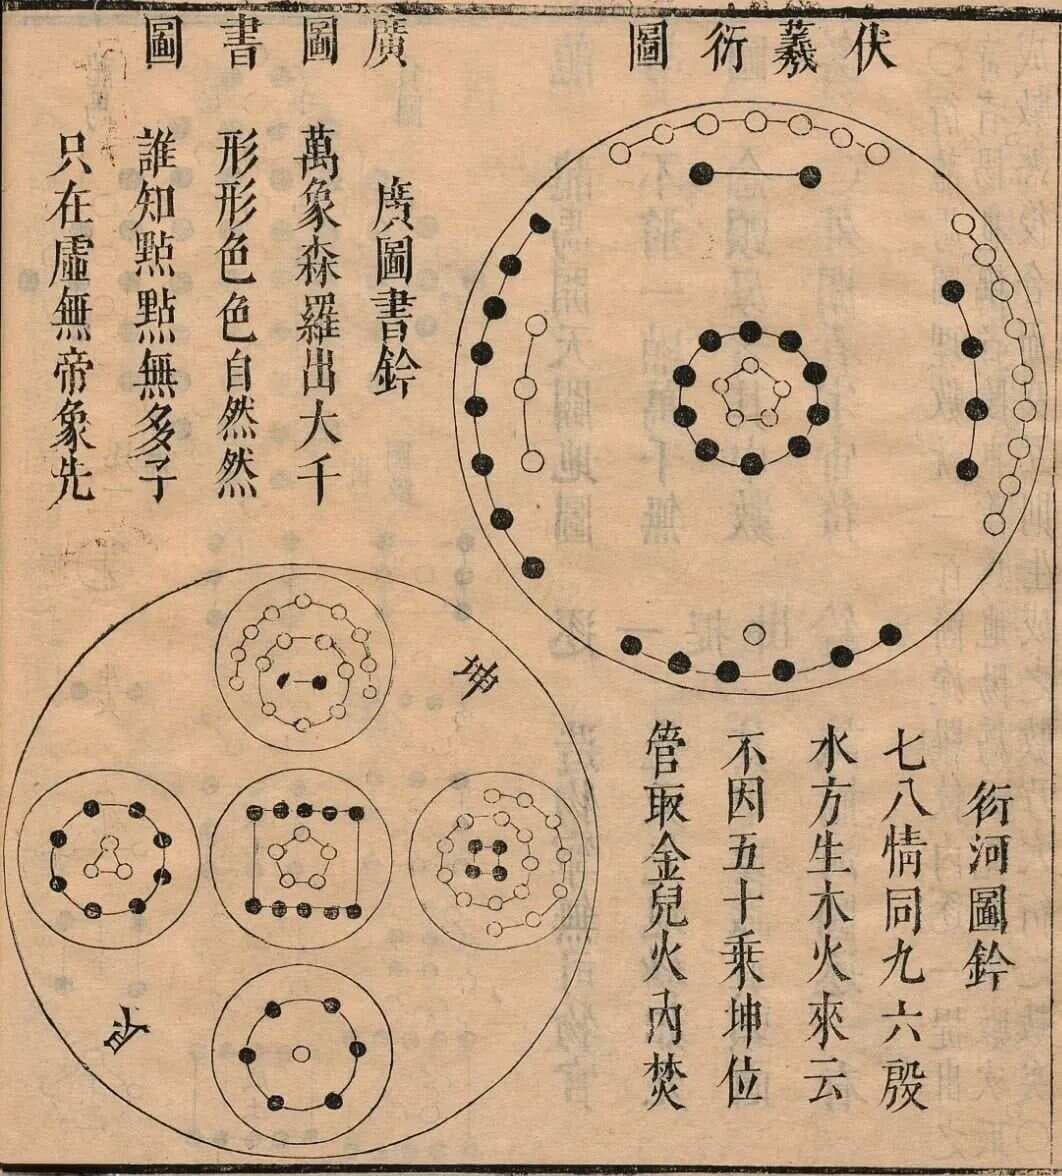 伏羲衍圖
衍河圖鈐
七八情同九六殷
水方生木火來云
不因五十乘坤位
管取金兒火內焚
廣圖書圖
廣圖書鈐
萬象森羅出大千
形形色色自然然
誰知點點無多子
只在虛無帝象先
坤
艮